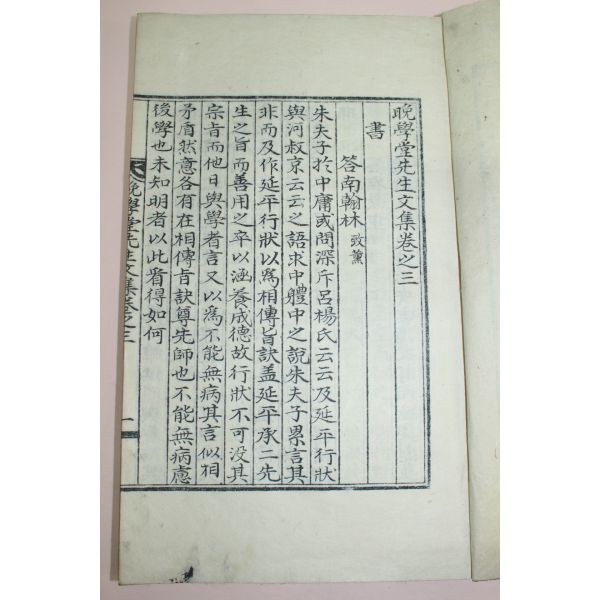 晚學堂先生文集卷之三
書
答南翰林 致薰
朱夫子於中庸或問深斥呂楊氏云云及延平行狀
與河叔京云云之語求中體中之說朱夫子累言其
非而及作延平行狀以爲相傳旨訣盖延平承二先
生之旨而善用之卒以涵養成德故行狀不可没其
宗旨而他日與學者言又以爲不能無病其言似相
矛盾然意各有在相傳旨訣尊先師也不能無病慮
後學也未知明者以此看得如何
晚學堂先生文集卷之三 一